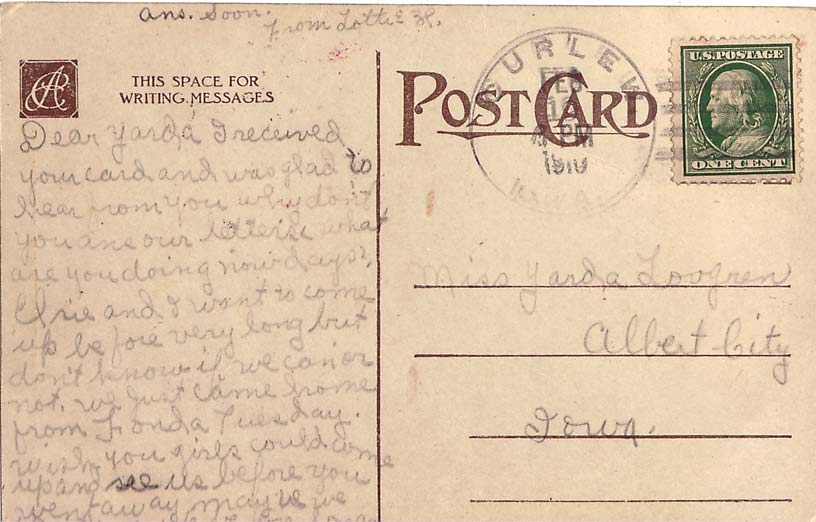 Ans. Soon.
From Lottie
THIS SPACE FOR
WRITING MESSAGES
Dear Yarda I received
your card and was glad to
hear rom you why don't
you ans our letters, what
are you doing now days?
Elsie and I want to come
up be fore very long but
don't know if we can or
not. we just came home
from Fonda Tuesday.
wish you girls could come
up and see us before you
went away may be we
POST CARD
CURLEW
FEB
4 PM
1910
IOWA
U.S. POSTAGE
ONE CENT
Miss Yarda Loogren
Albert City
Iowa.